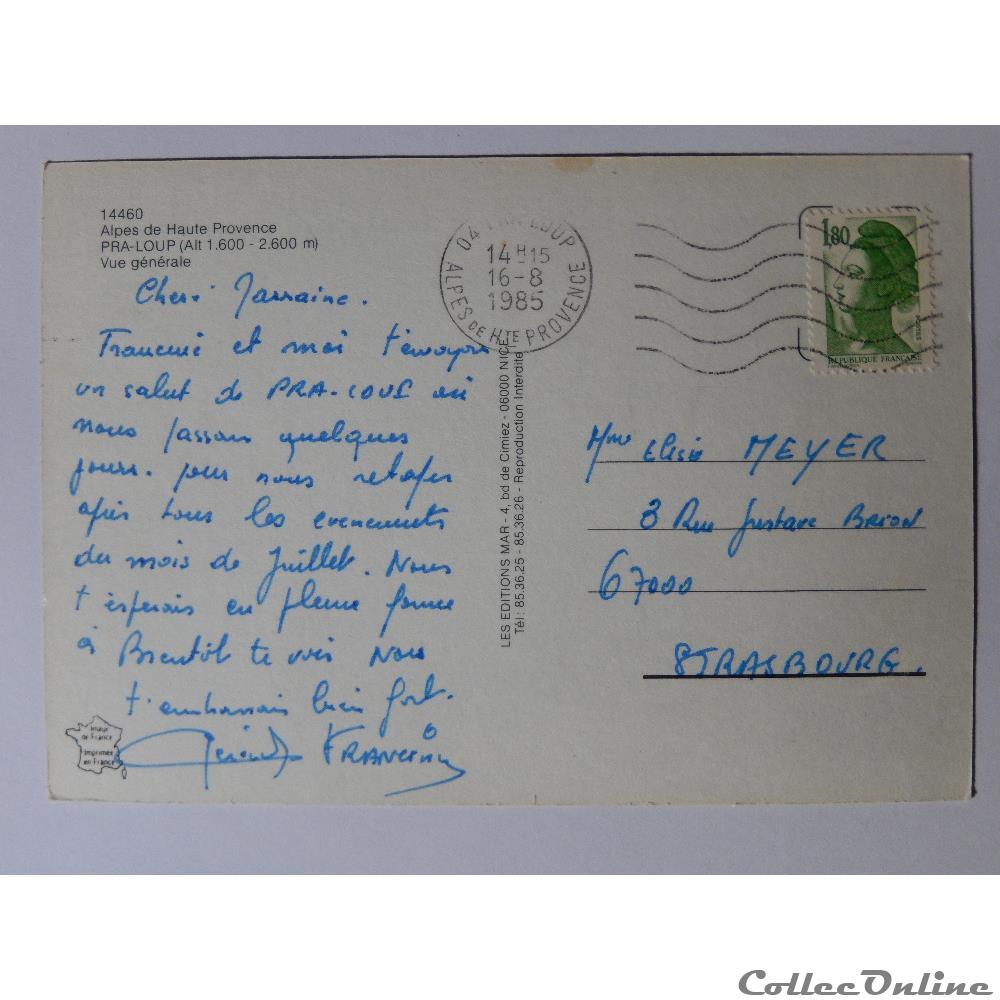 14460
Alpes de Haute Provence
PRA-LOUP (Alt 1.600 - 2.600 m)
Vue générale
Marraine.
et moi t'envoyons
un salut de PRA-LOUP où
nous passons quelques
jours. pour nous retaper
après tous les evenements
du mois de Juillet. Nous
t'esperons en pleine forme
à Bientôt te voir Nous
t'embrassons bien fort.
FRANCINE
Imagé
de France
Imprimée
en France
LES EDITIONS MAR - 4, bd de Cimiez - 06000 NICE
Tél : 85.36.25 - 85.36.26 - Reproduction Interdite
04 PRA-LOUP
14H15
16-8
1985
ALPES DE HTE PROVENCE
1,80
REPUBLIQUE FRANÇAISE
Mme MEYER
3 Rue Gustave BRION
67000
STRASBOURG.
CollecOnline